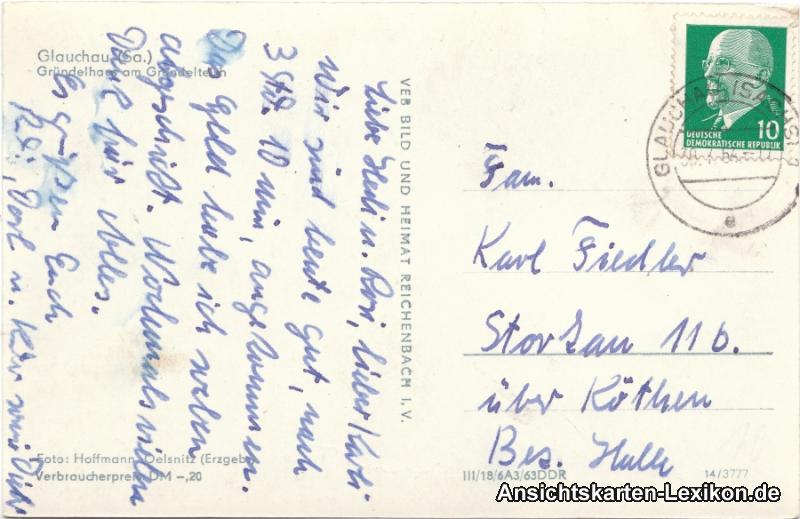 Glauchau (Sa.)
Gründelhaus am Gründelteich
Liebe Heli u. Rosi, lieber Karli
Wir sind heute gut, nach
3 Std. 10 Min, angekommen.
Das Geld habe ich
abgeschickt. Nochmals vielen
Dank für Alles.
Es grüßen Euch
u.
VEB BILD UND HEIMAT REICHENBACH I. V.
DEUTSCHE
DEMOKRATISCHE REPUBLIK
10
GLAUCHAU (SACHS)
e
Fam.
Karl Fiedler
Storkau 11 b.
über Köthen
Bez. Halle
Foto: Hoffmann, Oelsnitz (Erzgeb.)
Verbraucherpreis DM –,20
III/18/6A3/63DDR
14/3777
Ansichtskarten-Lexikon.de